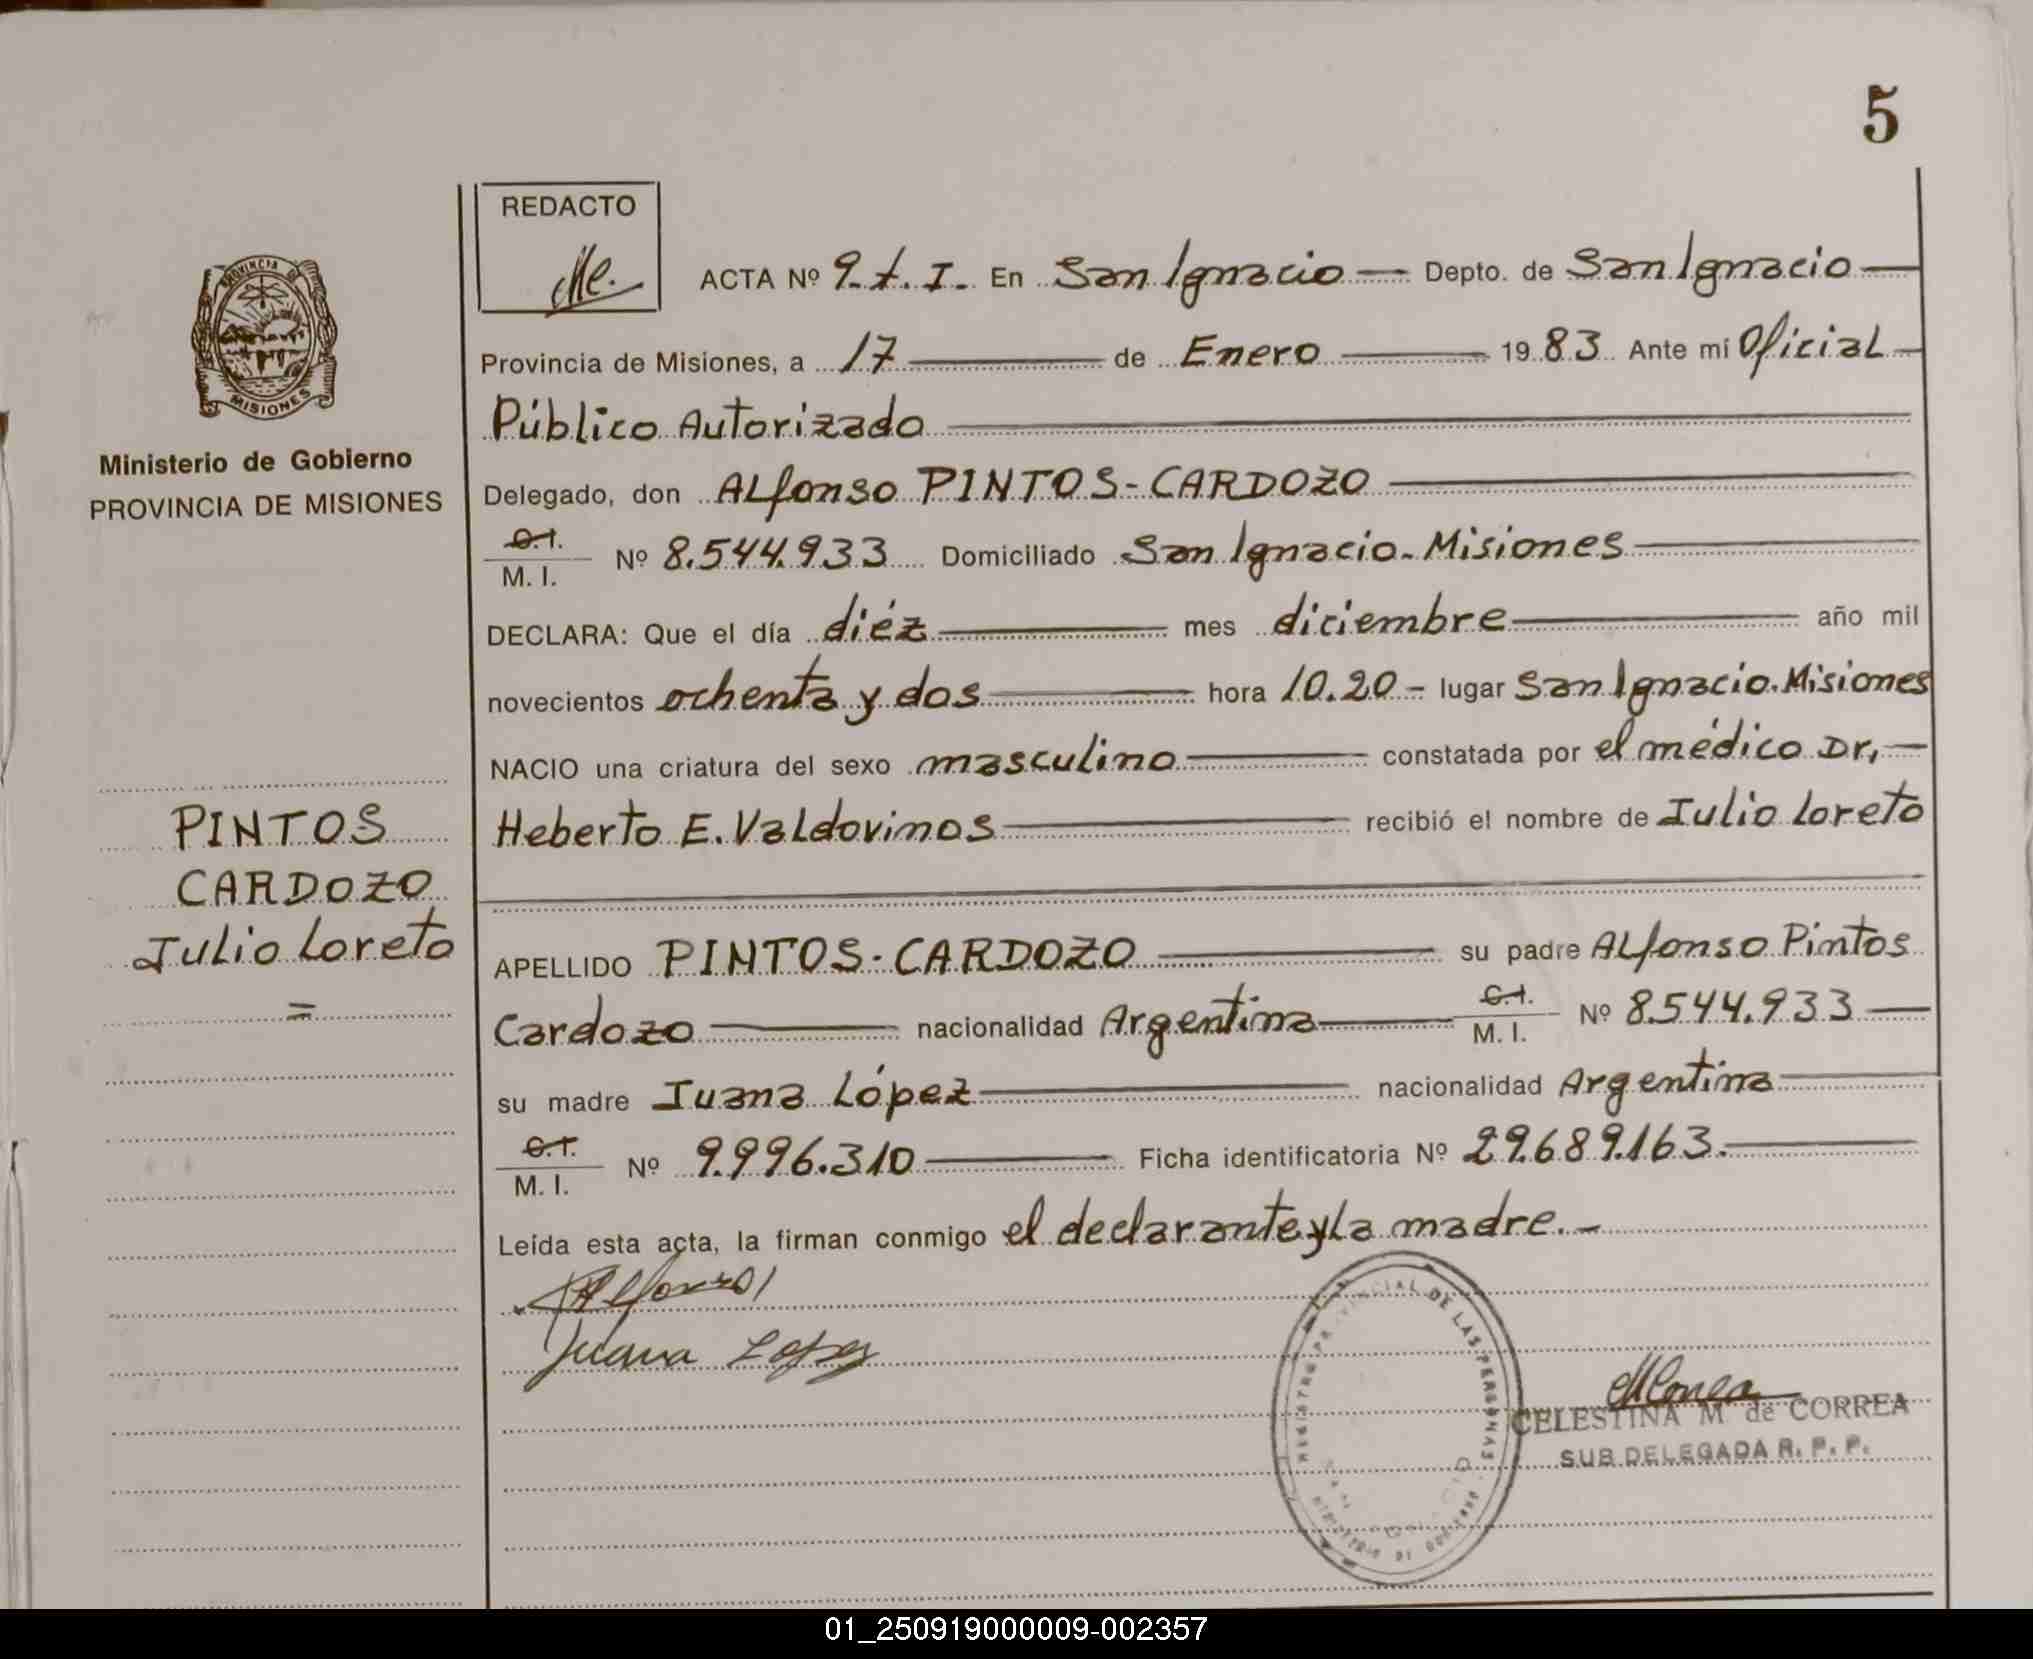 5
REDACTO
ACTA Nº 9.t.I. En San Ignacio Depto. de San Ignacio
Provincia de Misiones, a 17 de Enero 1983 Ante mí Oficial
Público Autorizado
PROVINCIA DE
MISIONES
Ministerio de Gobierno
PROVINCIA DE MISIONES
Delegado, don Alfonso PINTOS-CARDOZO
C.I.
M. I. Nº 8.544.933 Domiciliado San Ignacio-Misiones
DECLARA: Que el día diéz mes diciembre año mil
novecientos ochenta y dos hora 10.20 - lugar San Ignacio.Misiones
NACIO una criatura del sexo masculino constatada por el médico Dr,
Heberto E. Valdovinos recibió el nombre de Julio Loreto
PINTOS
CARDOZO
Julio Loreto
=
APELLIDO PINTOS-CARDOZO su padre Alfonso Pintos
Cardozo nacionalidad Argentina C.I.
M. I. Nº 8.544.933
su madre Juana López nacionalidad Argentina
C.I.
M. I. Nº 9.996.310 Ficha identificatoria Nº 29.689.163.
Leída esta acta, la firman conmigo el declarante y la madre.-
Alfonso
Juana Lopez
REGISTRO PROVINCIAL DE LAS PERSONAS
MINISTERIO DE GOBIERNO
CELESTINA M de CORREA
SUB DELEGADA R. P. P.
01_250919000009-002357